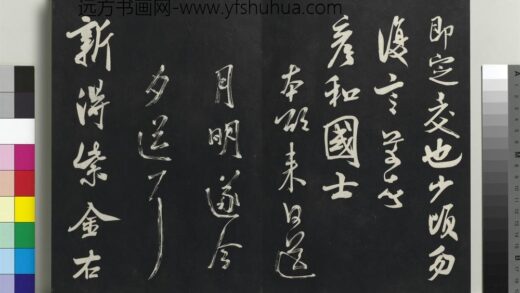 远方书画网-www.yfshuhua.com
即定交也少頃勿
復言芾頓首
彥和國士
本欲来日送
月明遂今
夕送耳
新得紫金右